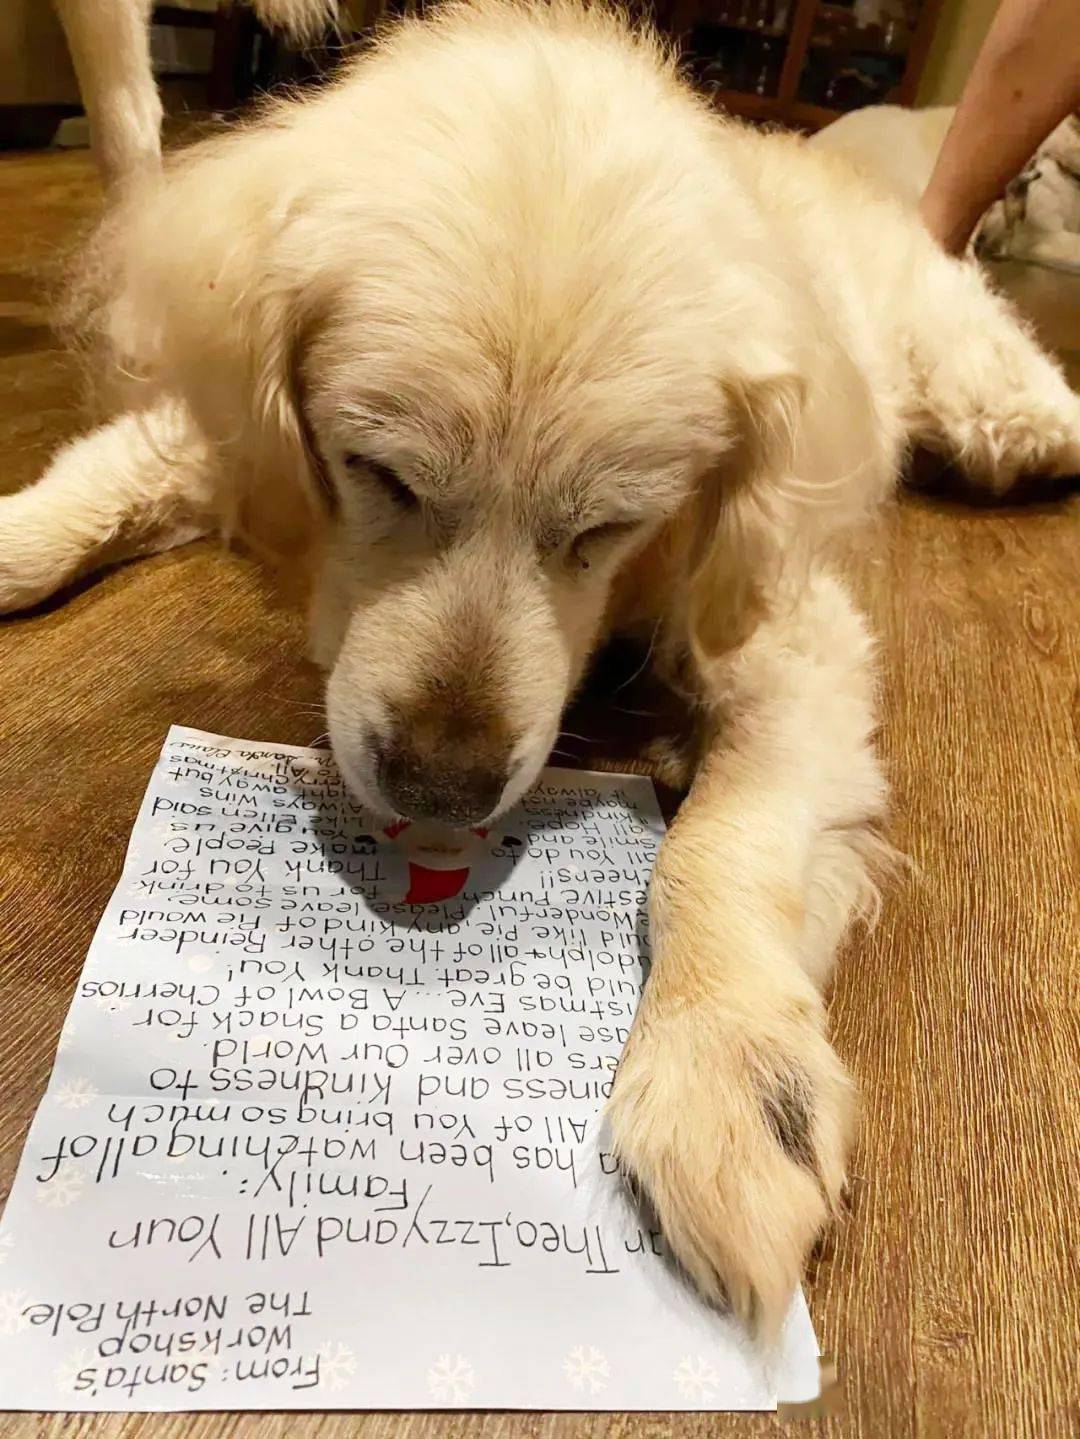 From: Santa's
Workshop
The North Pole
Theo, Izzy and All Your
Family:
has been watching all of
All of You bring so much
and Kindness to
all over Our World.
leave Santa a Snack for
Eve... A Bowl of Cherrios
be great. Thank You!
+ all of the other Reindeer
like Pie, any kind of Pie would
Wonderful. Please leave some
Punch for us to drink
Cheers!!
Thank You for
all You do to make People
smile and You give us
all Hope. Like Ellen said
"kindness Always Wins
maybe not right away but
it always Merry Christmas
To All.
Santa Claus